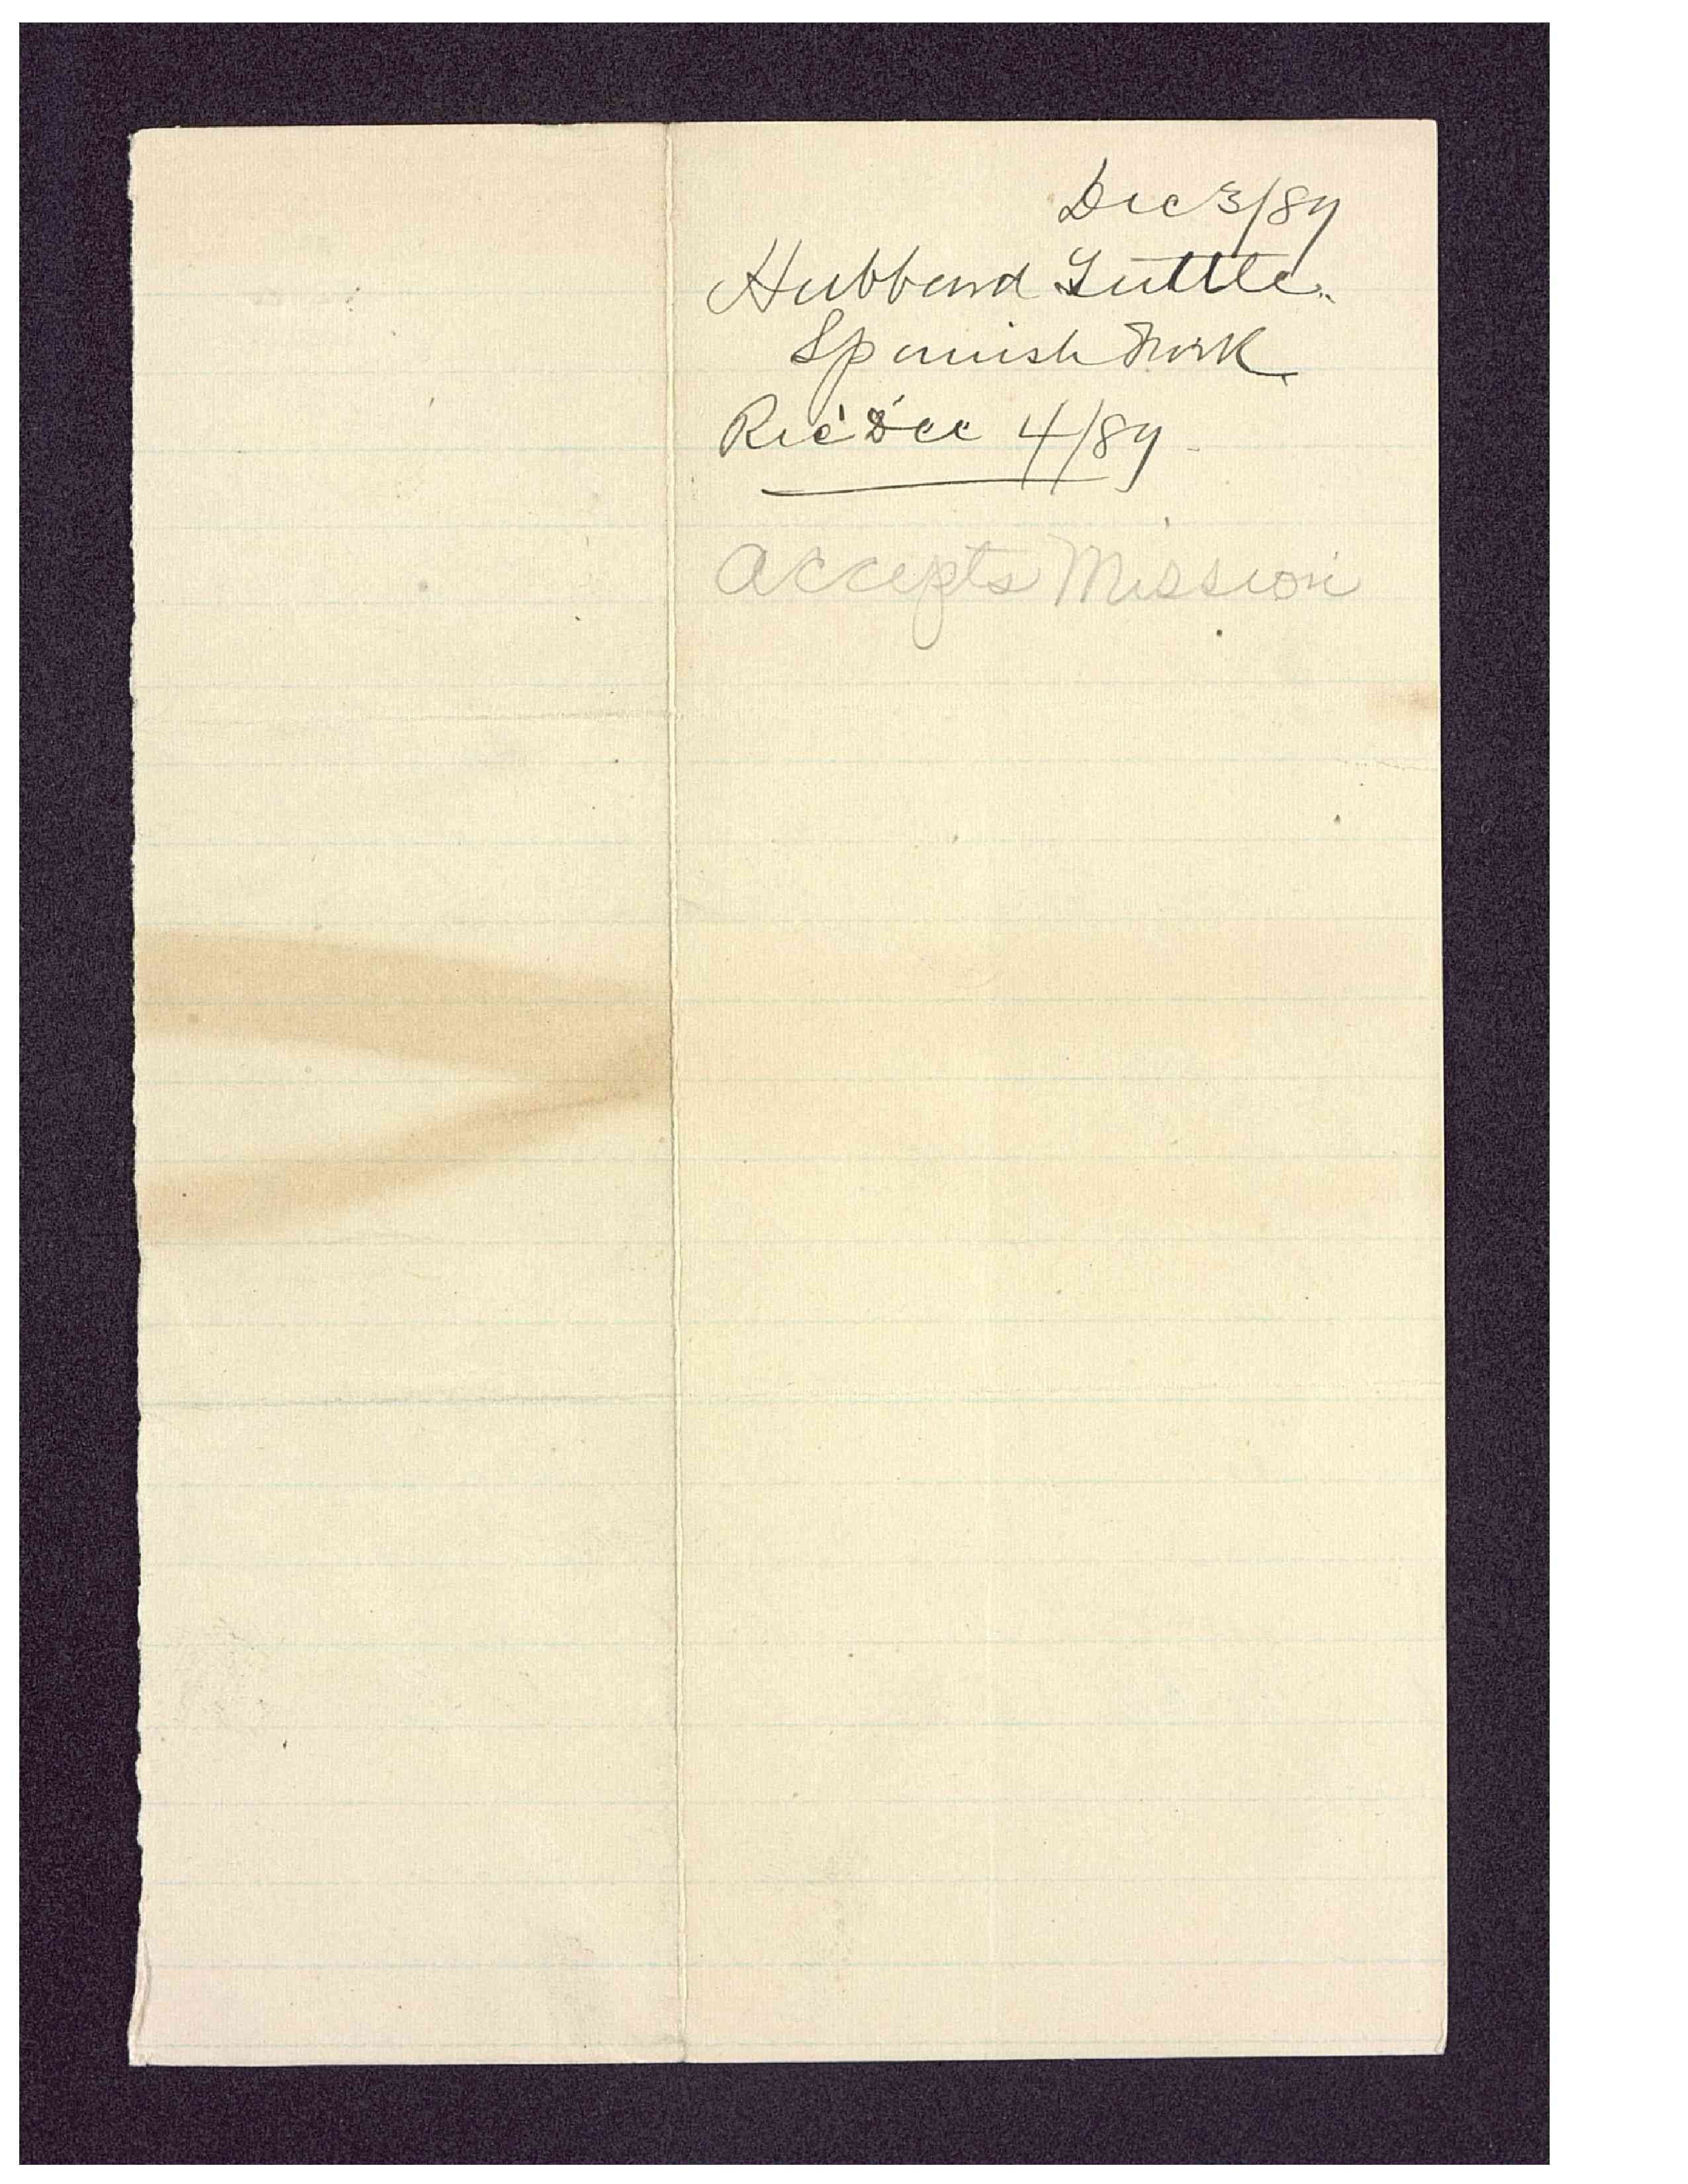 Dec 3/89
Hubbard Tuttle.
Spanish Fork
Rec' Dec 4/89
Accepts Mission